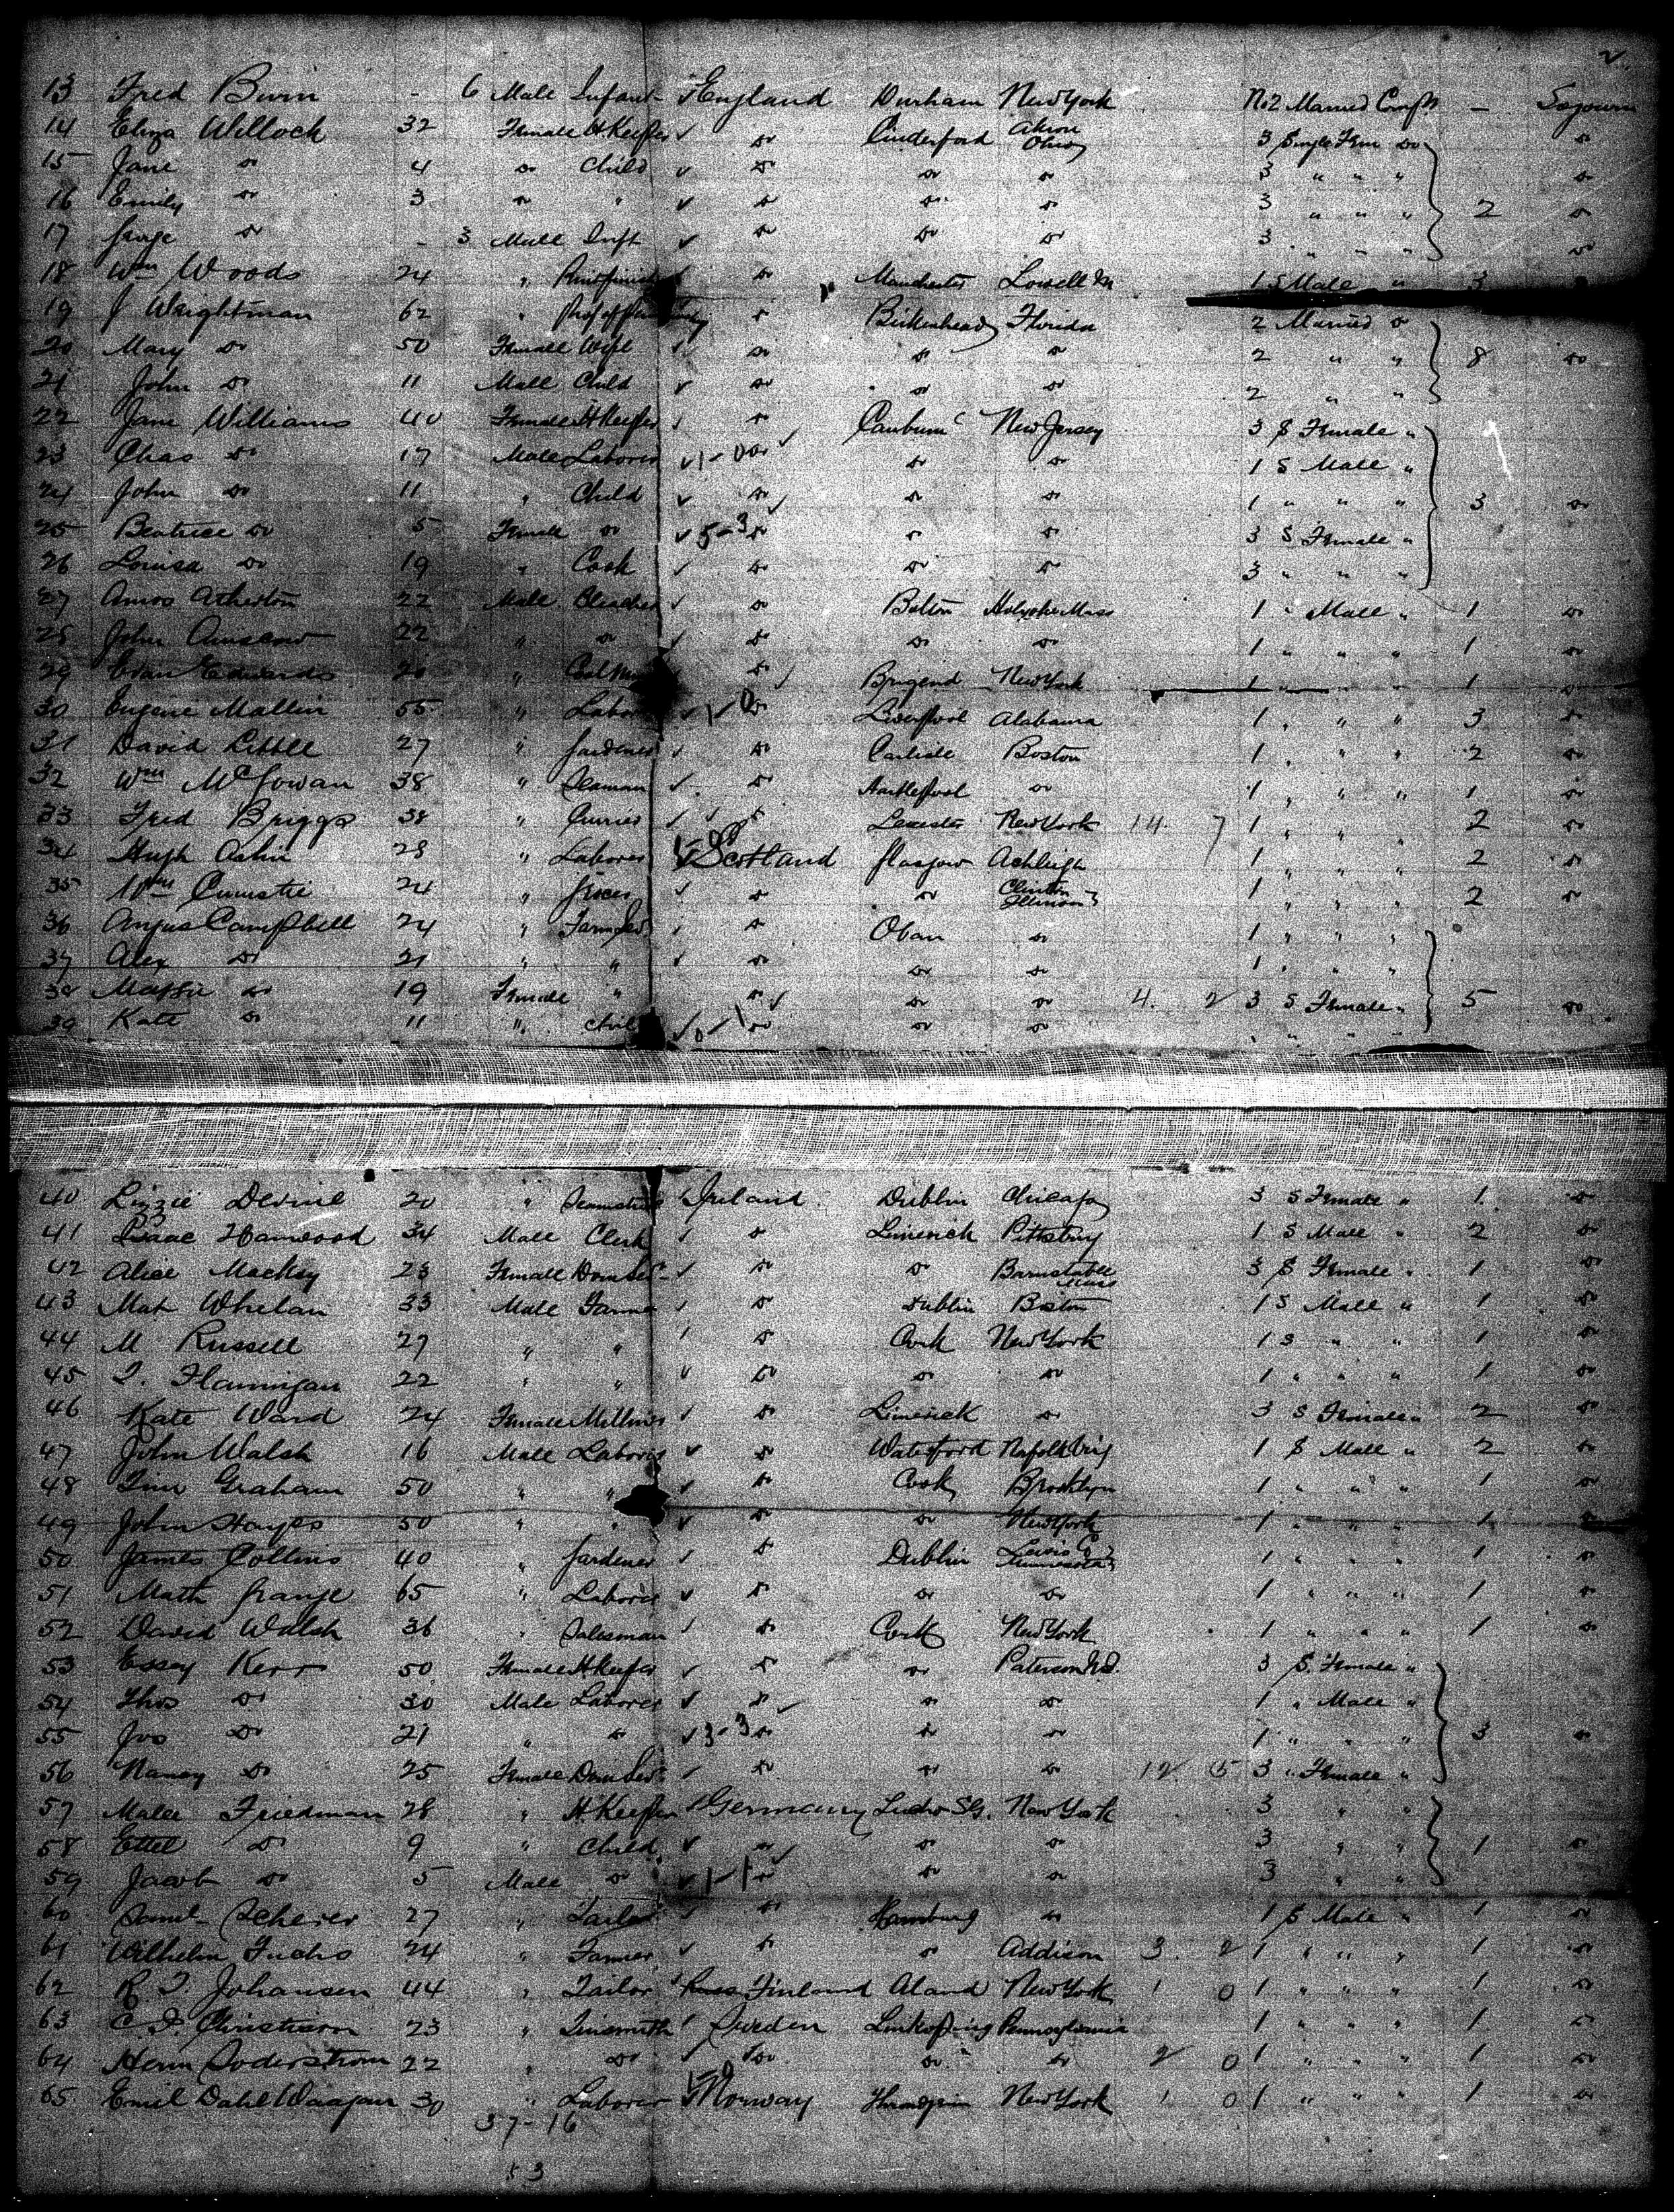 2
13 Fred Burn - 6 Male Infant England Durham New York No2 Married Comp. - Sojourn
14 Eliza Willock 32 Female H Keeper do Cinderford Akron Ohio 3 Single Fem do do
15 Jane do 4 do Child do do do 3 " " " do
16 Emily do 3 do " do do do 3 " " " 2 do
17 George do - 3 Male Inft do do do 3 " " " do
18 Wm Woods 24 " do Manchester Lowell M 1 S Male " 3
19 J Wrightman 62 " Prof of do Birkenhead Florida 2 Married do
20 Mary do 50 Female Wife do do do 2 " " 8 do
21 John do 11 Male Child do do do 2 " "
22 Jane Williams 40 Female H Keeper do New Jersey 3 S Female "
23 Chas. do 17 Male Laborer 1-0 do do do 1 S Male "
24 John do 11 " Child do do do 1 " " " 3 do
25 Beatrice do 5 Female do 5-3 do do do 3 S Female "
26 Louisa do 19 " Cook do do do 3 " " "
27 Amos Atherton 22 Male Bleacher do Bolton Holyoke Mass 1 " Male " 1 do
28 John 22 " do do do do 1 " " " 1 do
29 Evan Edwards 20 " Coal Min do Brigend New York 1 " " " 1 do
30 Eugene Mallin 55 " Labor 1-0 do Liverpool Alabama 1 " " " 3 do
31 David Little 27 " Gardener do Carlisle Boston 1 " " " 2 do
32 Wm McGowan 38 " Seaman do Hartlepool do 1 " " " 1 do
33 Fred Briggs 38 " Currier do Leicester New York 14 7 1 " " 2 do
34 Hugh 28 " Laborer Scotland Glasgow Ashleigh 1 " " " 2 do
35 Wm 24 " Grocer do do Clinton Illinois 1 " " " 2 do
36 Angus Campbell 24 " Farm Ser. do Oban do 1 " " "
37 Alex do 21 " " do do do 1 " " "
38 Maggie do 19 Female " do do do 4. 2 3 S Female " 5 do
39 Kate do 11 " Chil 0-1 do do do " " "
40 Lizzie Devine 20 " Seamstress Ireland Dublin Chicago 3 S Female " 1 do
41 Isaac Harwood 34 Male Clerk do Limerick Pittsburg 1 S Male " 2 do
42 Alice Mackey 23 Female Dom Ser do do Barnstable Mass 3 S Female " 1 do
43 Mat Whelan 33 Male Farmer do Dublin Boston 1 S Male " 1 do
44 M Russell 27 " " do Cork New York 1 S " " 1 do
45 Flannigan 22 " " do do do 1 " " " 1 do
46 Kate Ward 24 Female Milliner do Limerick do 3 S Female " 2 do
47 John Walsh 16 Male Laborer do Waterford Nafolk Virg 1 S Male " 2 do
48 Tim Graham 50 " " do Cork Brooklyn 1 " " " 1 do
49 John Hayes 50 " " do do New York 1 " " " 1 do
50 James Collins 40 " Gardener do Dublin 1 " " " 1 do
51 Math Grange 65 " Laborer do do do 1 " " " 1 do
52 David Walsh 36 " Salesman do Cork New York 1 " " " 1 do
53 Essey Kerr 50 Female H Keeper do do Paterson N.J. 3 S. Female "
54 Thos do 30 Male Laborer do do do 1 " Male "
55 Jos do 21 " do 3-3 do do do 1 " " " 3 do
56 Nancy do 25 Female Dom Ser do do do 12 5 3 " Female "
57 Malee Friedman 28 " H Keeper Germany New York 3 " "
58 Ettel do 9 " Child do do do 3 " " 1 do
59 Jacob do 5 Male do 1-1 do do do 3 " "
60 Saml Scherer 27 " Tailor do Hamburg do 1 S Male " 1 do
61 Wilhelm Fuchs 24 " Farmer do do Addison 3 2 1 " " " 1 do
62 Johansen 44 " Tailor Russ Finland Aland New York 1 0 1 " " " 1 do
63 Christison 23 " Tinsmith Sweden Linkoping Pennsylvania 1 " " " 1 do
64 Herm Soderstrom 22 " do do do do 2 0 1 " " " 1 do
65 Emil Dahl 30 " Laborer Norway New York 1 0 1 " " " 1 do
37-16
53